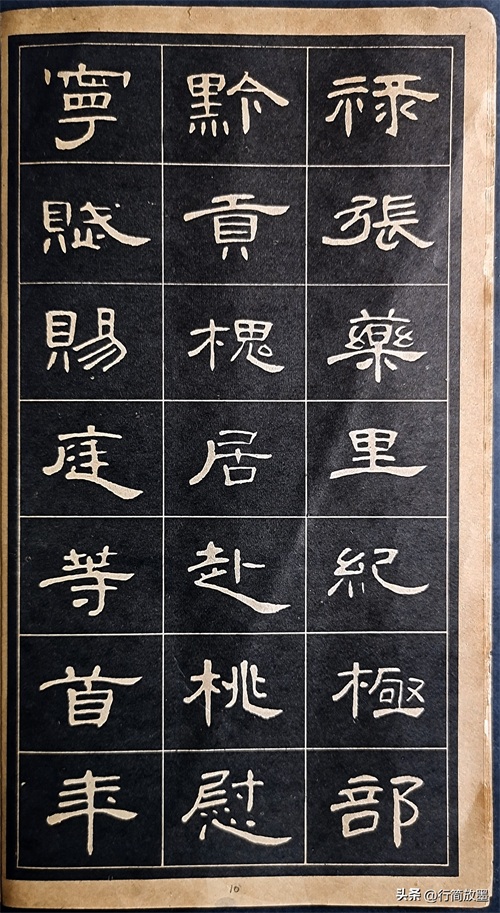 祿張藥里紀極部
黔貢槐居赴桃慰
寧賦賜庭等首年
10
头条 @行简放墨